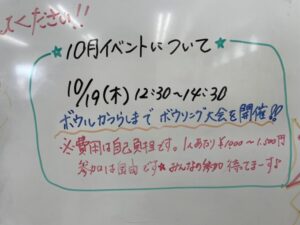 ください!!
★10月イベントについて★
10/19(木) 12:30~14:30
ボウルかつらしまで ボウリング大会を開催!!
※費用は自己負担です。1人あたり¥1000~1.500円
参加は自由です★みんなの参加 待ってまーす♪